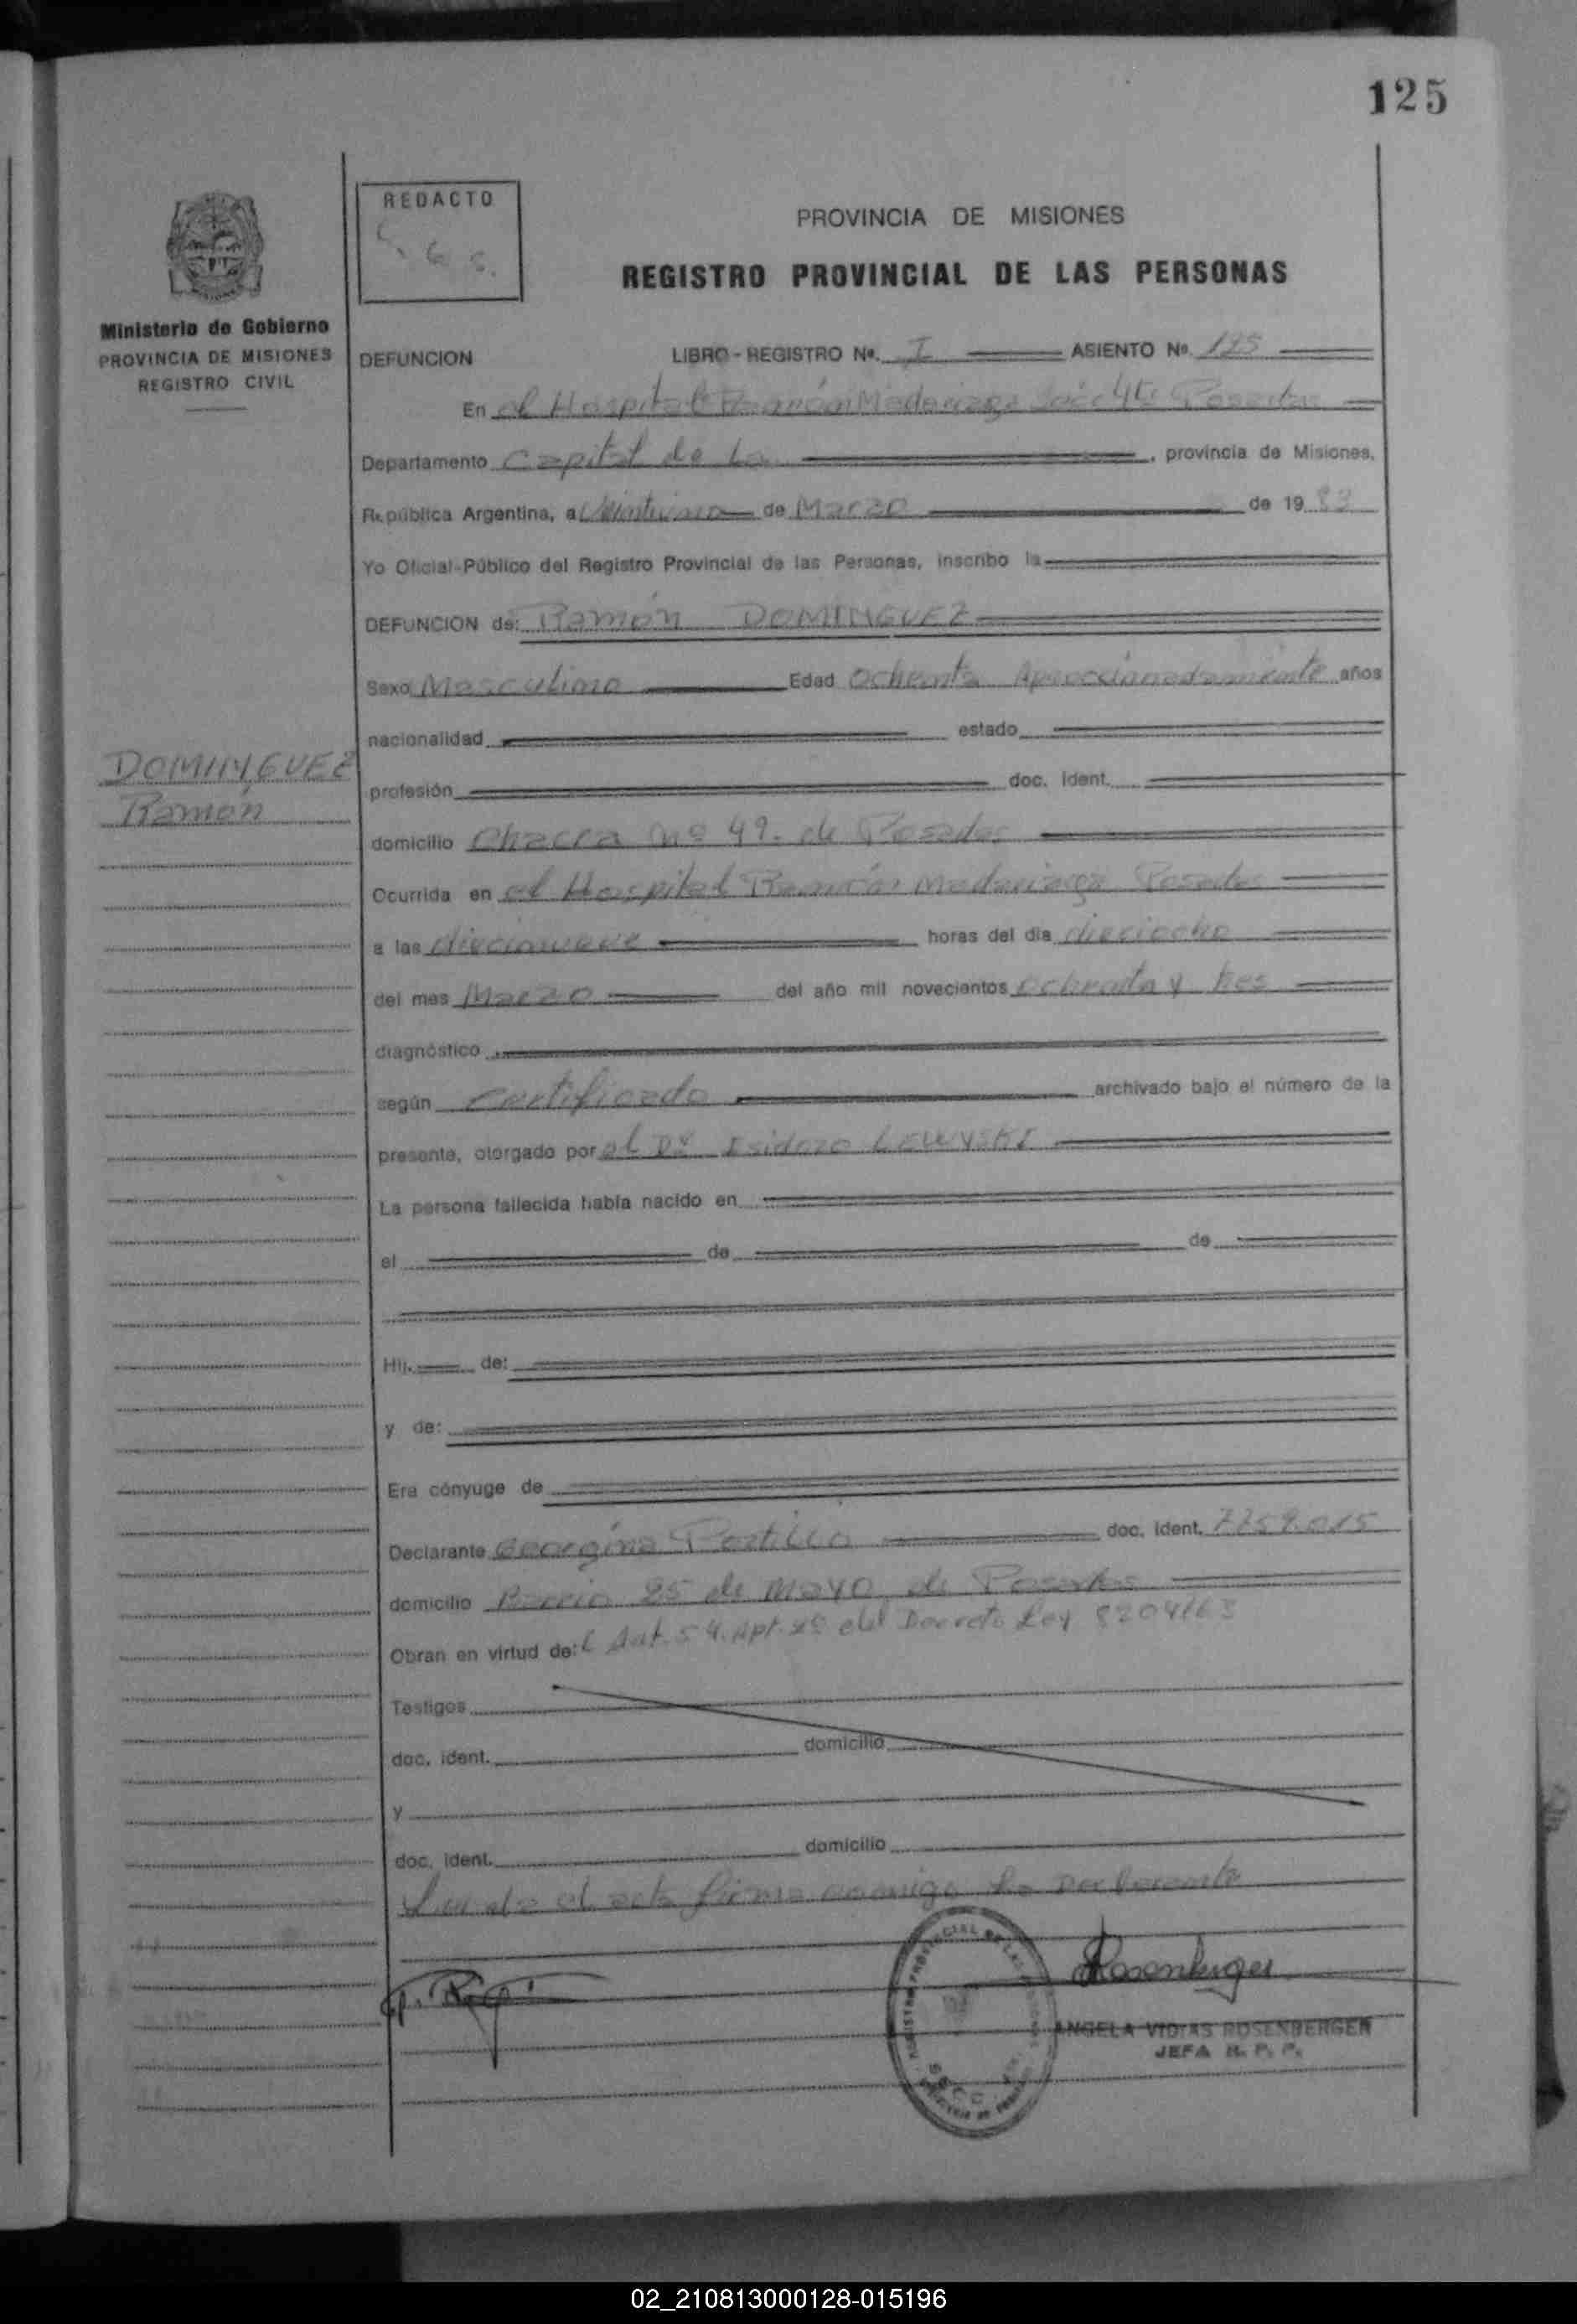 125
REDACTO
PROVINCIA DE MISIONES
REGISTRO PROVINCIAL DE LAS PERSONAS
Ministerio de Gobierno
PROVINCIA DE MISIONES
REGISTRO CIVIL
DEFUNCION LIBRO - REGISTRO Nº. I ASIENTO Nº. 125
En el Hospital Ramón Madariaga Posadas
Departamento Capital de La , provincia de Misiones,
República Argentina, a Veintiuno de Marzo de 19 83
Yo Oficial Público del Registro Provincial de las Personas, inscribo la
DEFUNCION de: Ramón DOMINGUEZ
Sexo Masculino Edad Ochenta años
nacionalidad estado
DOMINGUEZ
Ramón
profesión doc. ident.
domicilio Chacra Nº 49. de Posadas
Ocurrida en el Hospital Ramón Madariaga Posadas
a las diecinueve horas del día dieciocho
del mes Marzo del año mil novecientos ochenta y tres
diagnóstico
según certificado archivado bajo el número de la
presente, otorgado por el Dr. Isidoro LEWYSKI
La persona fallecida había nacido en
el de de
Hij. de:
y de:
Era cónyuge de
Declarante Georgina Portillo doc. ident. 7759.015
domicilio Barrio 25 de Mayo de Posadas
Obran en virtud de:l Art. 54. Apt. 2º del Decreto Ley 8204/63
Testigos
doc. ident. domicilio
y
doc. ident. domicilio
Leída el acta firma conmigo la Declarante
Rosenberger
ANGELA VIDIAS ROSENBERGER
JEFA R. P. P.
02_210813000128-015196